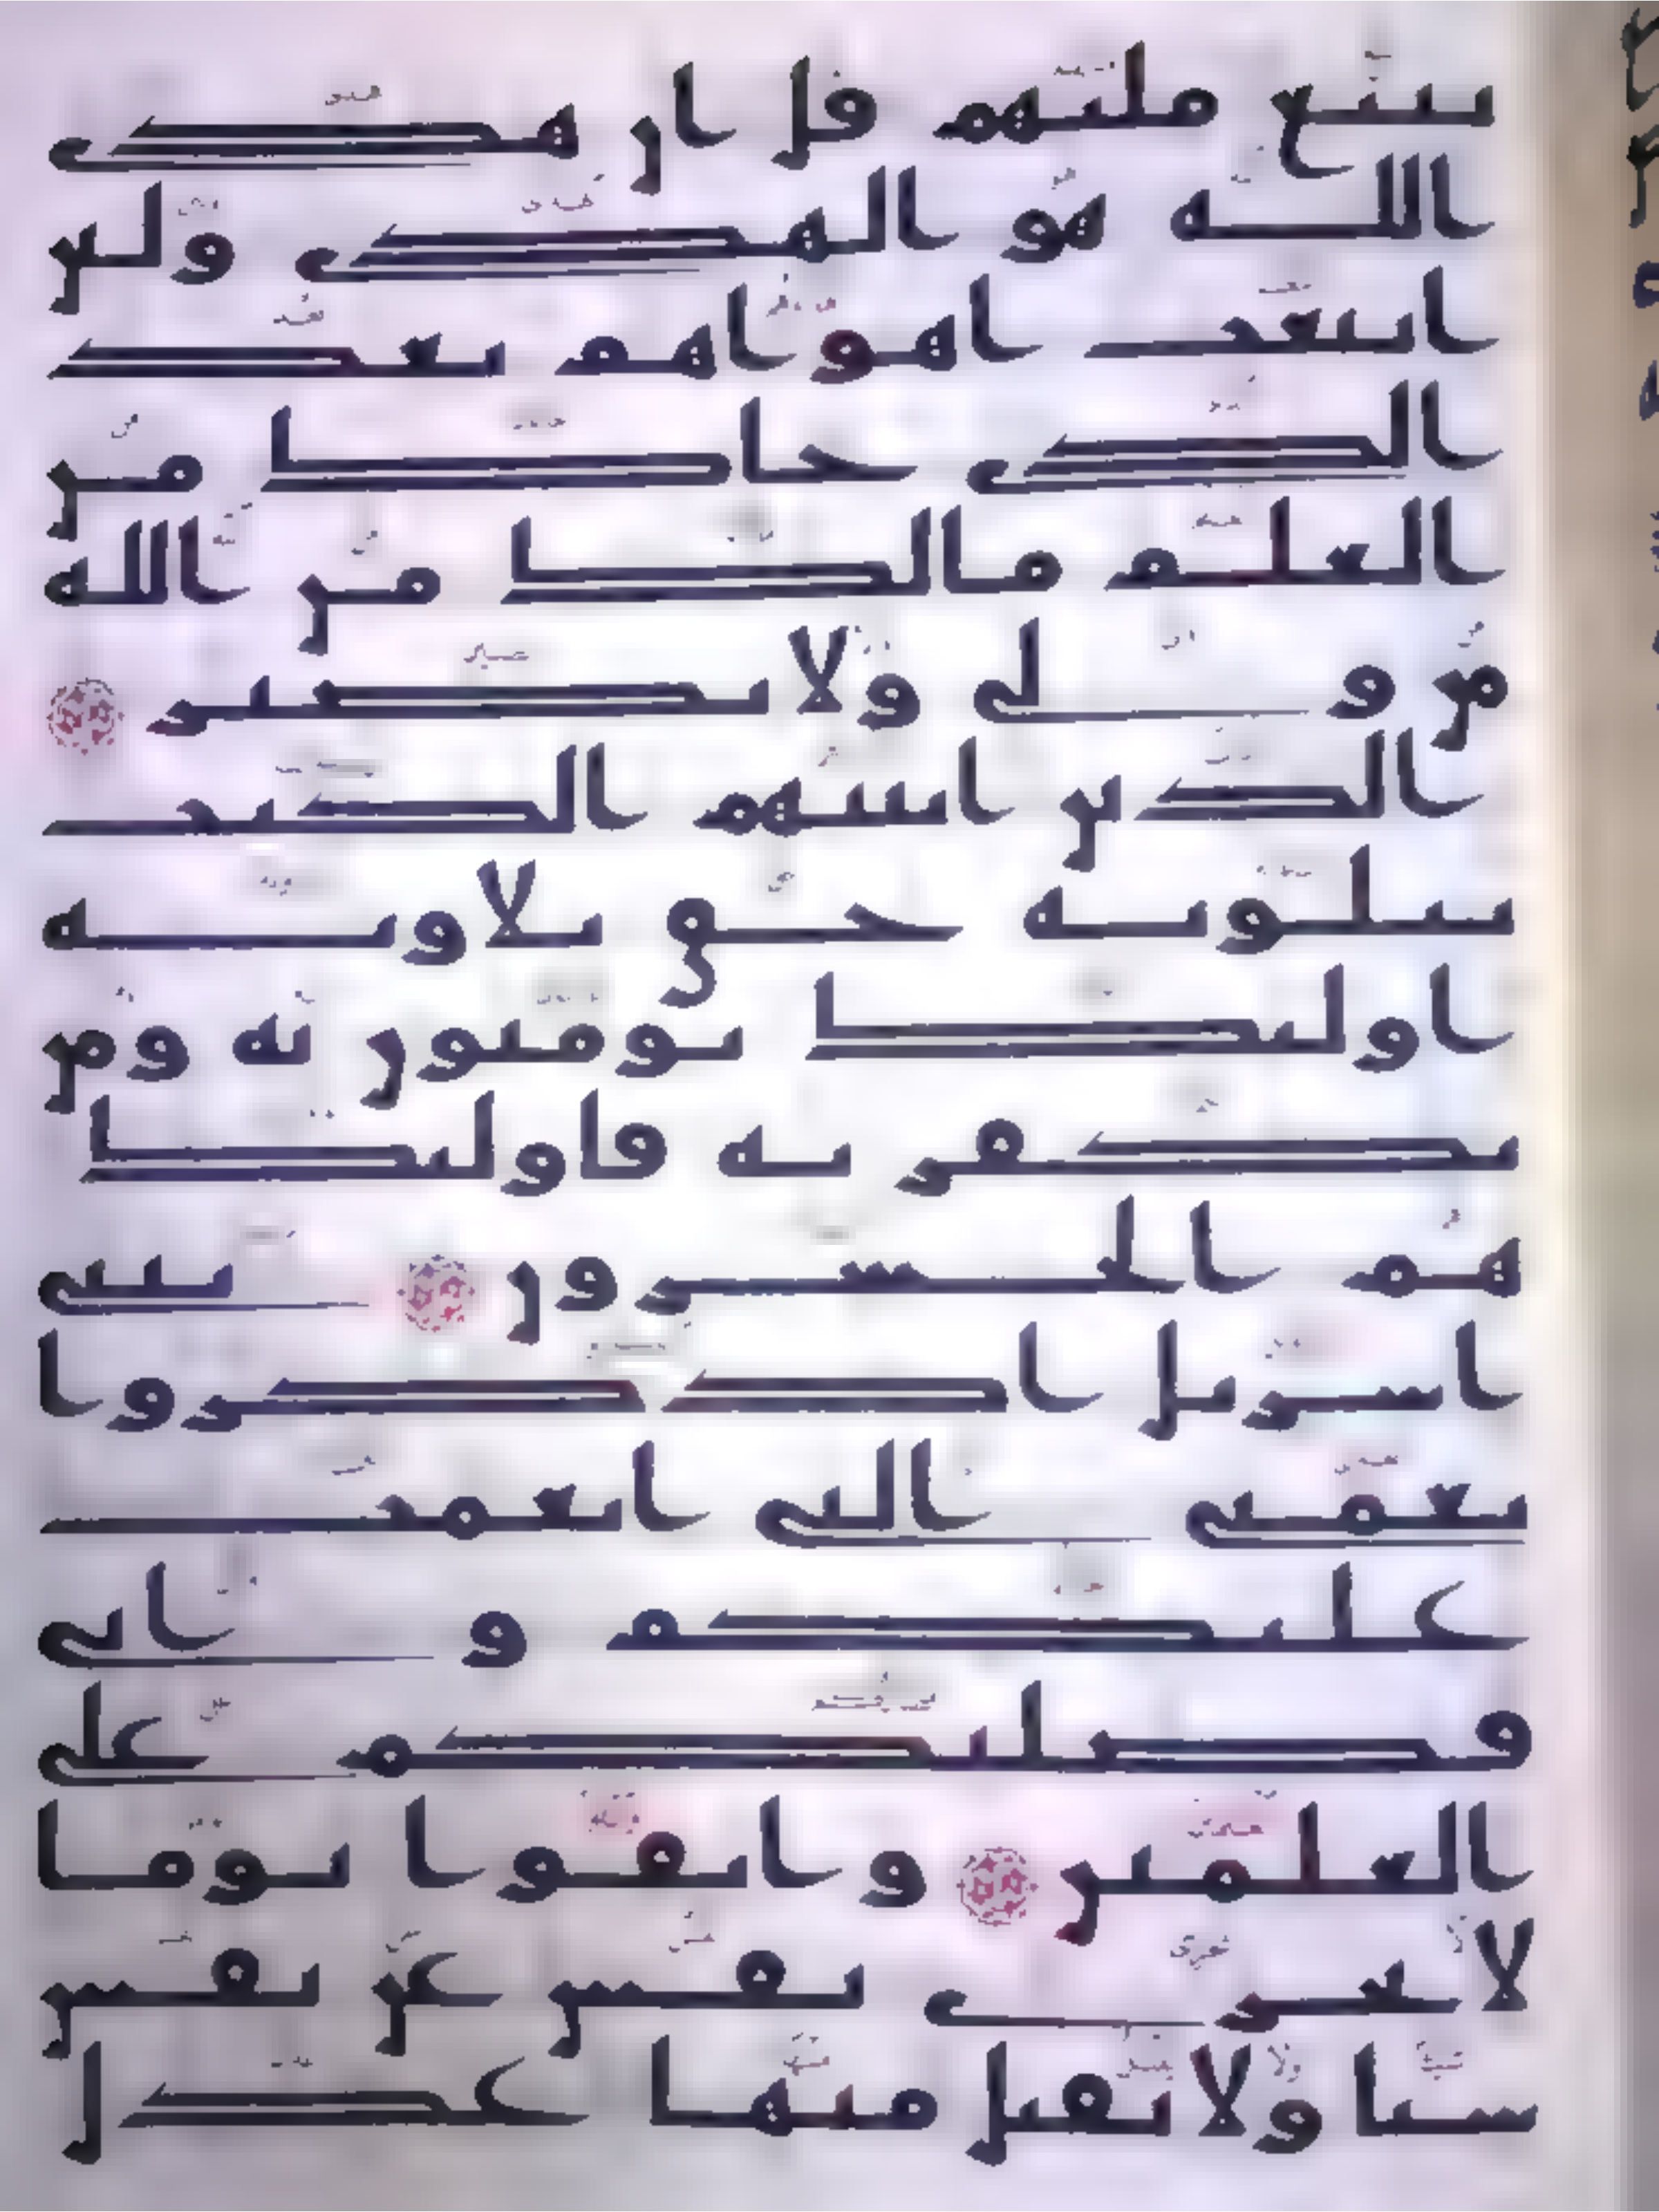 تتبع ملتهم قل ان هدى
الله هو الهدى ولين
اتبعت اهواهم بعد
الذى جاك من
العلم مالك من الله
من ولى ولا نصير
الذين اتينهم الكتب
يتلونه حق تلاوته
اوليك يومنون به ومن
يكفر به فاوليك
هم الخسرون يبنى
اسريل اذكروا
نعمتى التى انعمت
عليكم وانى
فضلتكم على
العلمين واتقوا يوما
لا تجزى نفس عن نفس
شيا ولا يقبل منها عدل